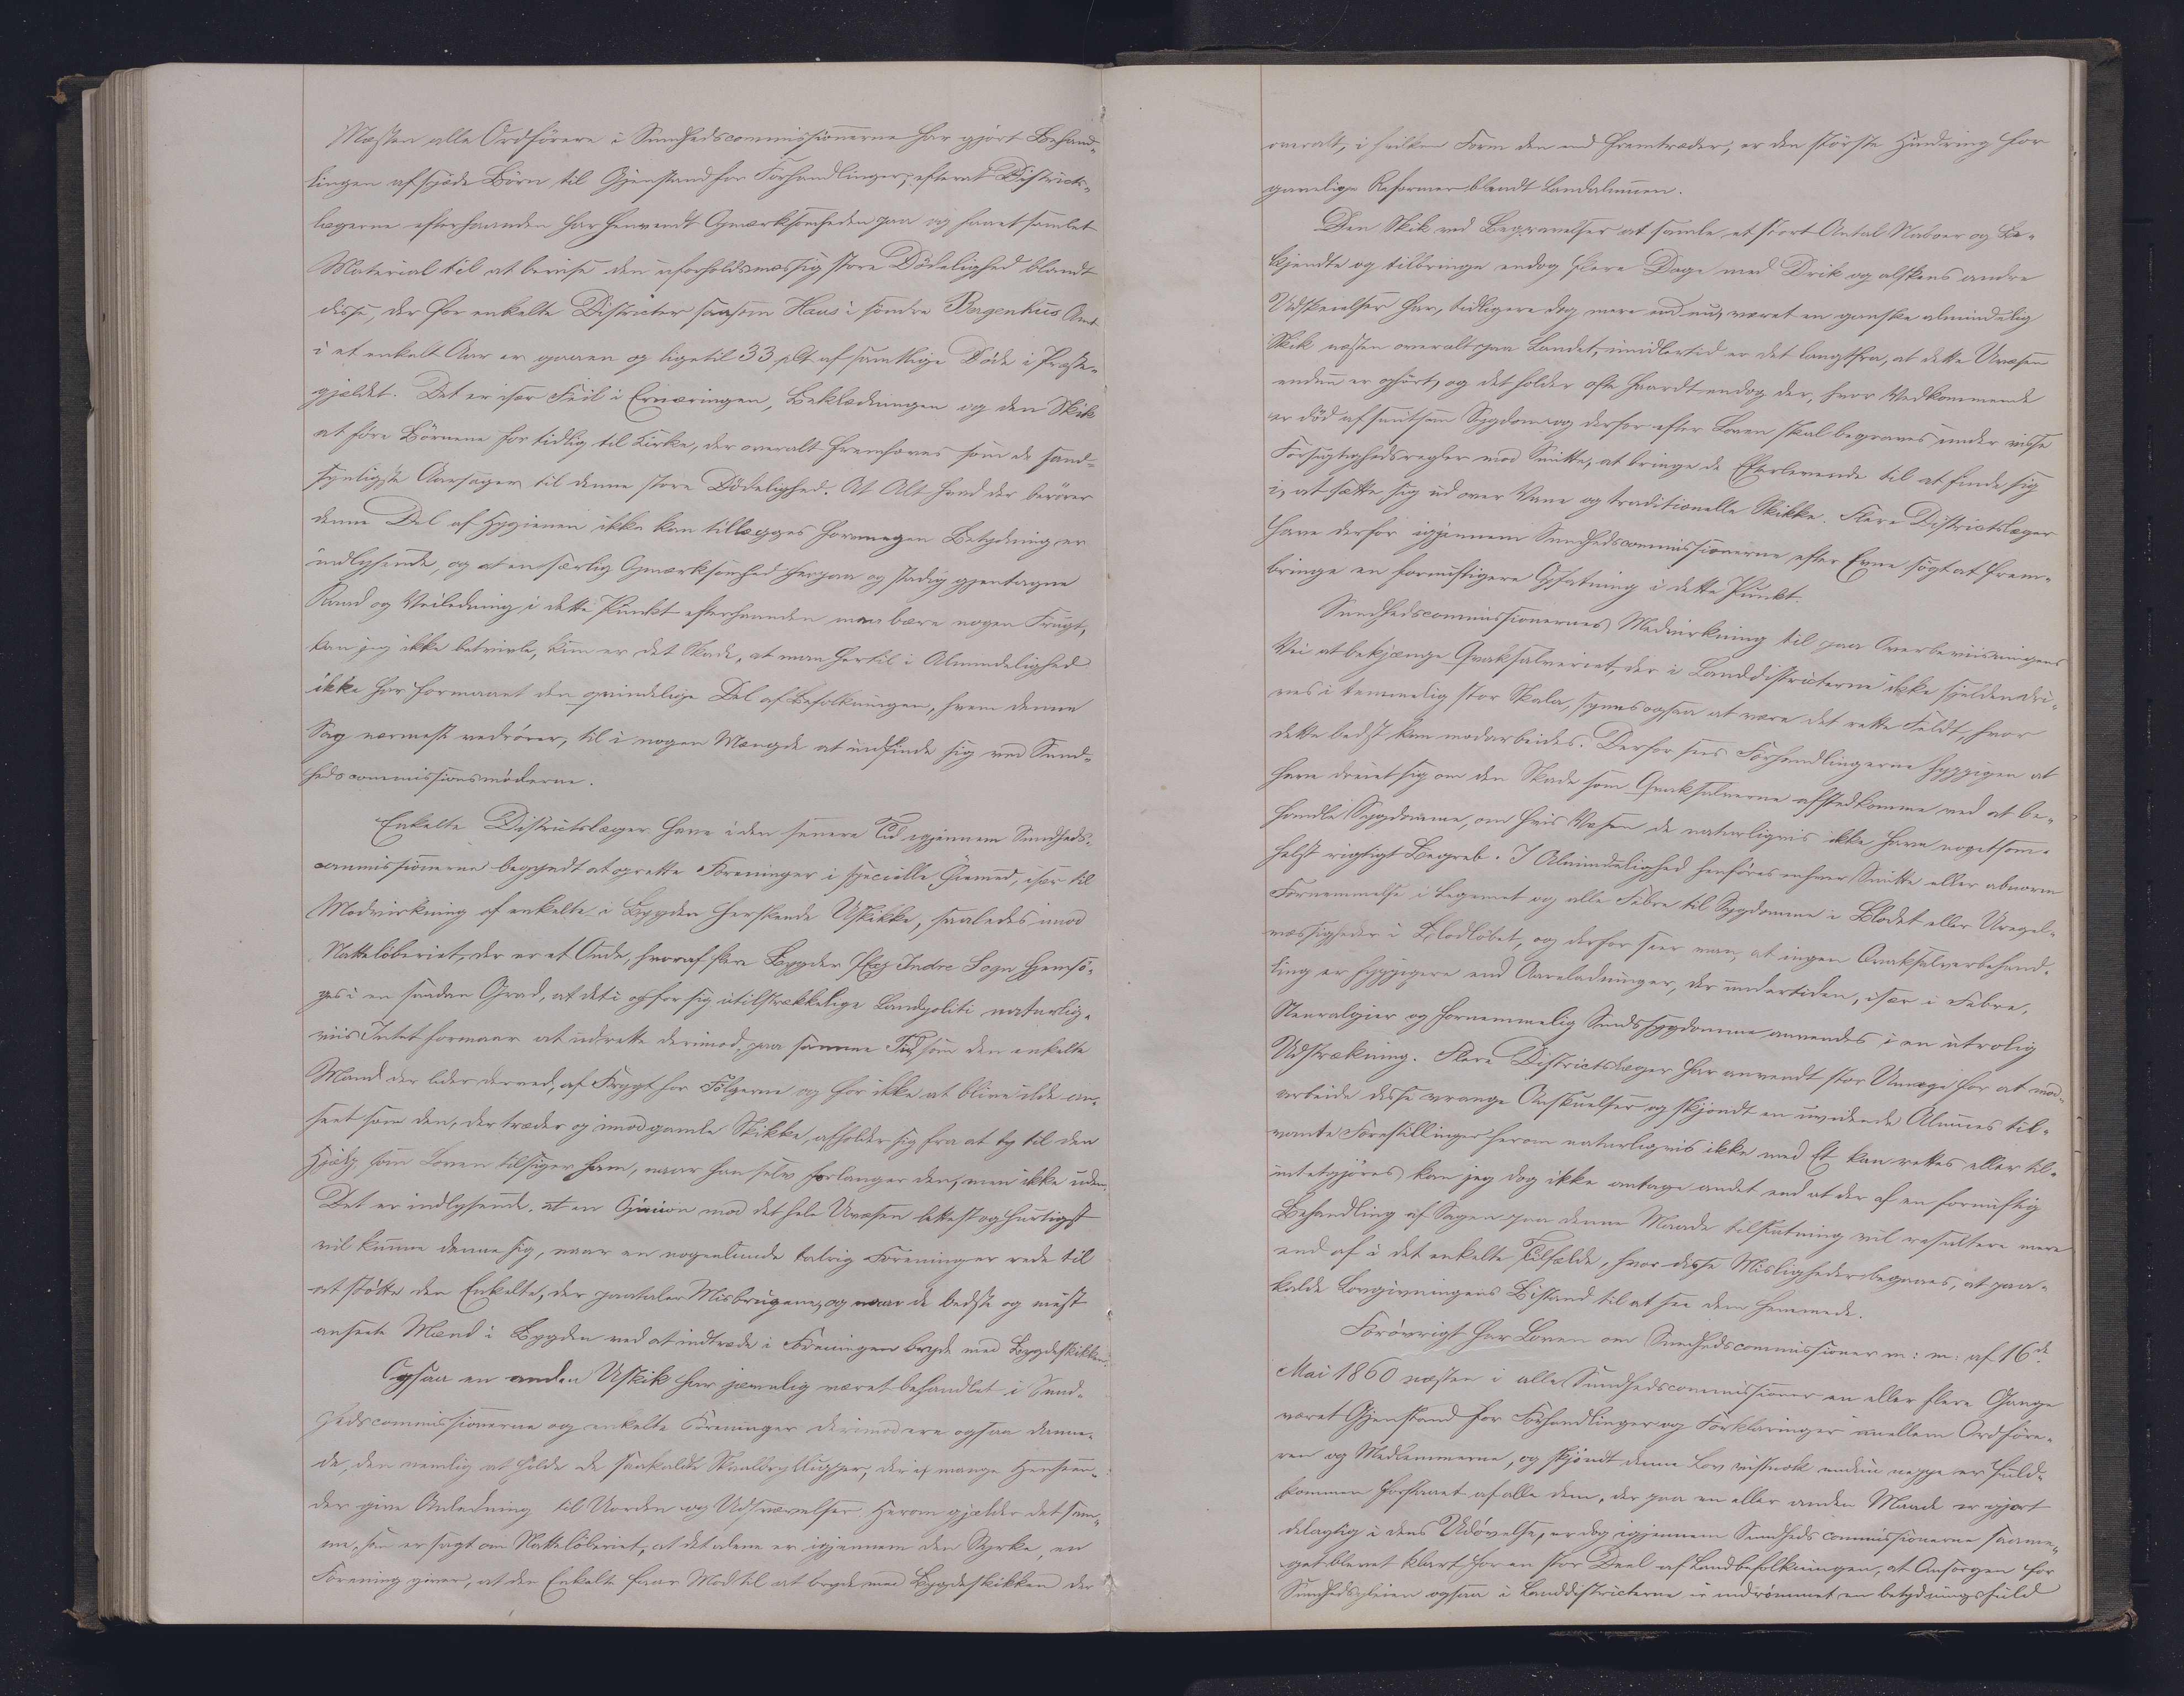 Næsten alle Ordförere i Sundhedscommissionerne har gjort Behand-
lingen af spæde Börn til Gjenstand for Forhandlinger, efterat Districts-
lægerne efterhaanden har henvendt Opmærksomheden paa og faaet samlet
Material til at bevise den uforholdsmæssig store Dödelighed blandt
disse, der for enkelte Districter saasom Haus i söndre Bergenhus Amt
i et enkelt Aar er gaaen op ligetil 33 pCt af samtlige Döde i Præste-
gjældet. Det er især Feil i Ernæringen, Beklædningen og den Skik
at före Börnene for tidlig til Kirke, der overalt fremhæves som de sand-
synligste Aarsager til denne store Dödelighed. At Alt hvad der berörer
denne Del af Hygienen ikke kan tillægges formegen Betydning er
indlysende, og at en særlig Opmærksomhed herpaa og stadig gjentagne
Raad og Veiledning i dette Punkt efterhaanden maa bære nogen Frugt,
kan jeg ikke betvivle, kun er det Skade, at man hertil i Almindelighed
ikke har formaaet den qvindelige Del af Befolkningen, hvem denne
Sag nærmest vedrörer, til i nogen Mængde at indfinde sig ved Sund-
hedscommissionsmöderne.
Enkelte Districtslæger have i den senere Tid igjennem Sundheds-
commissionerne begyndt at oprette Foreninger i specielle Öiemed, især til
Modvirkning af enkelte i Bygden herskende Uskikke, saaledes imod
Natteløberiet, der er et Onde, hvoraf flere Bygder f Ex Indre Sogn hjemsö-
ges i en saadan Grad, at det i og for sig utilstrækkelige Landpoliti naturlig-
viis Intet formaar at udrette derimod, paa samme Tid som den enkelte
Mand der lider derved, af Frygt for Fölgerne og for ikke at blive ilde an-
seet som den, der træder op imod gamle Skikke, afholder sig fra at ty til den
Hjælp som Loven tilsiger ham, naar han selv forlanger den, men ikke uden.
Det er indlysende, at en Opinion mod det hele Uvæsen lettest og hurtigst
vil kunne danne sig, naar en nogenlunde talrig Foreninger rede til
at stötte den Enkelte, der paataler Misbrugene, og naar de bedste og mest
ansete Mænd i Bygden ved at indtræde i Foreningen bryde med Bygdeskikken.
Ogsaa en anden Uskik har jævnlig været behandlet i Sund-
hedscommissionerne og enkelte Foreninger derimod ere ogsaa danne-
de, den nemlig at holde de saakaldte der i mange Henseen-
der give Anledning til Uorden og Udsvævelser. Herom gjælder det sam-
me, som er sagt om Natteløberiet, at det alene er igjennem den Styrke, en
Forening giver, at den Enkelte faar Mod til at bryde med Bygdeskikken der
overalt, i hvilken Form den end fremtræder, er den störste Hindring for
gavnlige Reformer blandt Landalmuen.
Den Skik ved Begravelser at samle et stort Antal Naboer og Be-
kjendte og tilbringe endog flere Dage med Drik og alskens andre
Udskeielser har, tidligere dog mere end nu, været en ganske almindelig
Skik næsten overalt paa Landet; imidlertid er det langtfra, at dette Uvæsen
endnu er ophört, og det holder ofte haardt endog der, hvor Vedkommende
er död af smitsom Sygdom og derfor efter Loven skal begraves under visse
Forsigtighedsregler mod Smitte, at bringe de Efterlevende til at finde sig
i, at sætte sig ud over Vane og traditionelle Skikke. Flere Districtslæger
have derfor igjennem Sundhedscommissionerne efter Evne sögt at frem-
bringe en fornuftigere Opfatning i dette Punkt.
Sundhedscommissionernes Medvirkning til paa Overbeviisningens
Vei at bekjæmpe Qvaksalveriet, der i Landdistricterne ikke sjelden dri-
ves i temmelig stor Skala, synes ogsaa at være det rette Feldt, hvor
dette bedst kan modarbeides. Derfor sees Forhandlingerne hyppigen at
have dreiet sig om den Skade som Qvaksalverne afstedkomme ved at be-
handle Sygdomme, om hvis Væsen de naturligviis ikke have nogetsom-
helst rigtigt Begreb. I Almindelighed henföres enhver Smitte eller abnorm
Fornemmelse i Legemet og alle Febre til Sygdomme i Blodet eller Uregel-
mæssigheder i Blodlöbet, og derfor seer man, at ingen Qvaksalverbehand-
ling er hyppigere end Aareladninger, der undertiden, især i Febre,
Neuralgier og fornemmelig Sindssygdomme anvendes i en utrolig
Udstrækning. Flere Districtslæger har anvendt stor Umage for at mod-
arbeide disse vrange Anskuelser og skjöndt en uvidende Almues til-
vante Forestillinger herom naturligvis ikke med Et kan rettes eller til-
intetgjöres, kan jeg dog ikke antage andet end at der af en fornuftig
Behandling af Sagen paa denne Maade tilslutning vil resultere mere
end af i det enkelte Tilfælde, hvor disse Misligheder begaaes, at paa-
kalde Lovgivningens Bistand til at see dem hemmede.
Forövrigt har Loven om Sundhedscommissioner m: m: af 16de
Mai 1860 næsten i alle Sundhedscommissioner en eller flere Gange
været Gjenstand for Forhandlinger og Forklaringer imellem Ordföre-
ren og Medlemmerne, og skjöndt denne Lov vistnok endnu neppe er fuld-
kommen forstaaet af alle dem, der paa en eller anden Maade er gjort
delagtig i dens Udövelse, er dog igjennem Sundhedscommissionerne saame-
get blevet klart for en stor Deel af Landbefolkningen, at Omsorgen for
Sundhedspleien ogsaa i Landdistricterne er indrömmet en betydningsfuld